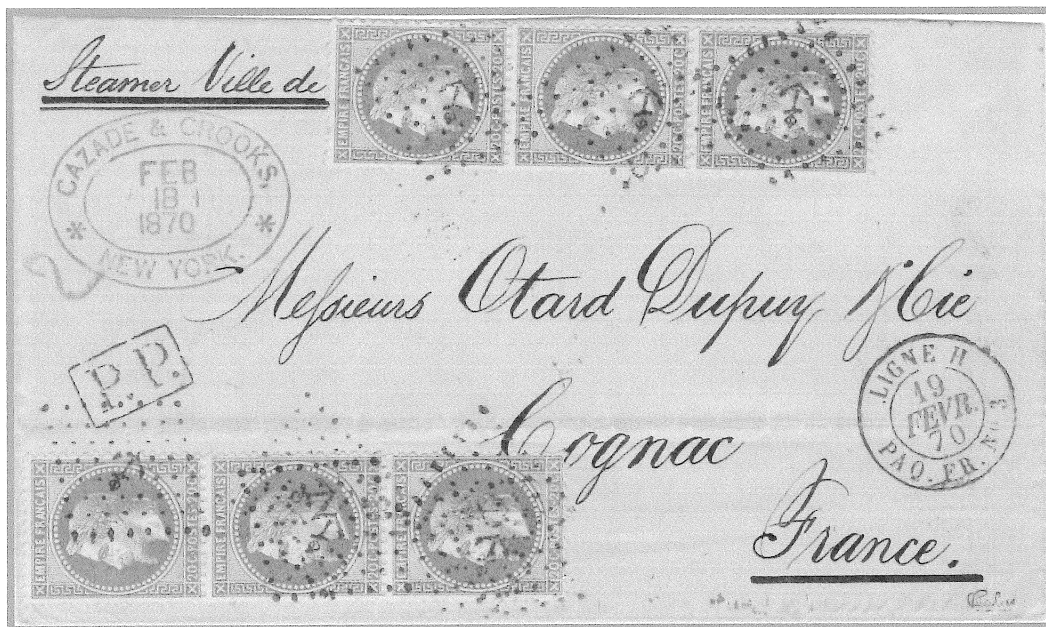 Steamer Ville de
EMPIRE FRANCAIS
20C-POSTES-20C
EMPIRE FRANCAIS
20C-POSTES-20C
EMPIRE FRANCAIS
20C-POSTES-20C
CAZADE & CROOKS,
FEB
18
1870
* NEW YORK. *
2
Messieurs Otard Dupuy & Cie
P.P.
LIGNE H
19
FEVR.
70
PAQ. FR. No
Cognac
EMPIRE FRANCAIS
20C-POSTES-20C
EMPIRE FRANCAIS
20C-POSTES-20C
EMPIRE FRANCAIS
20C-POSTES-20C
France.